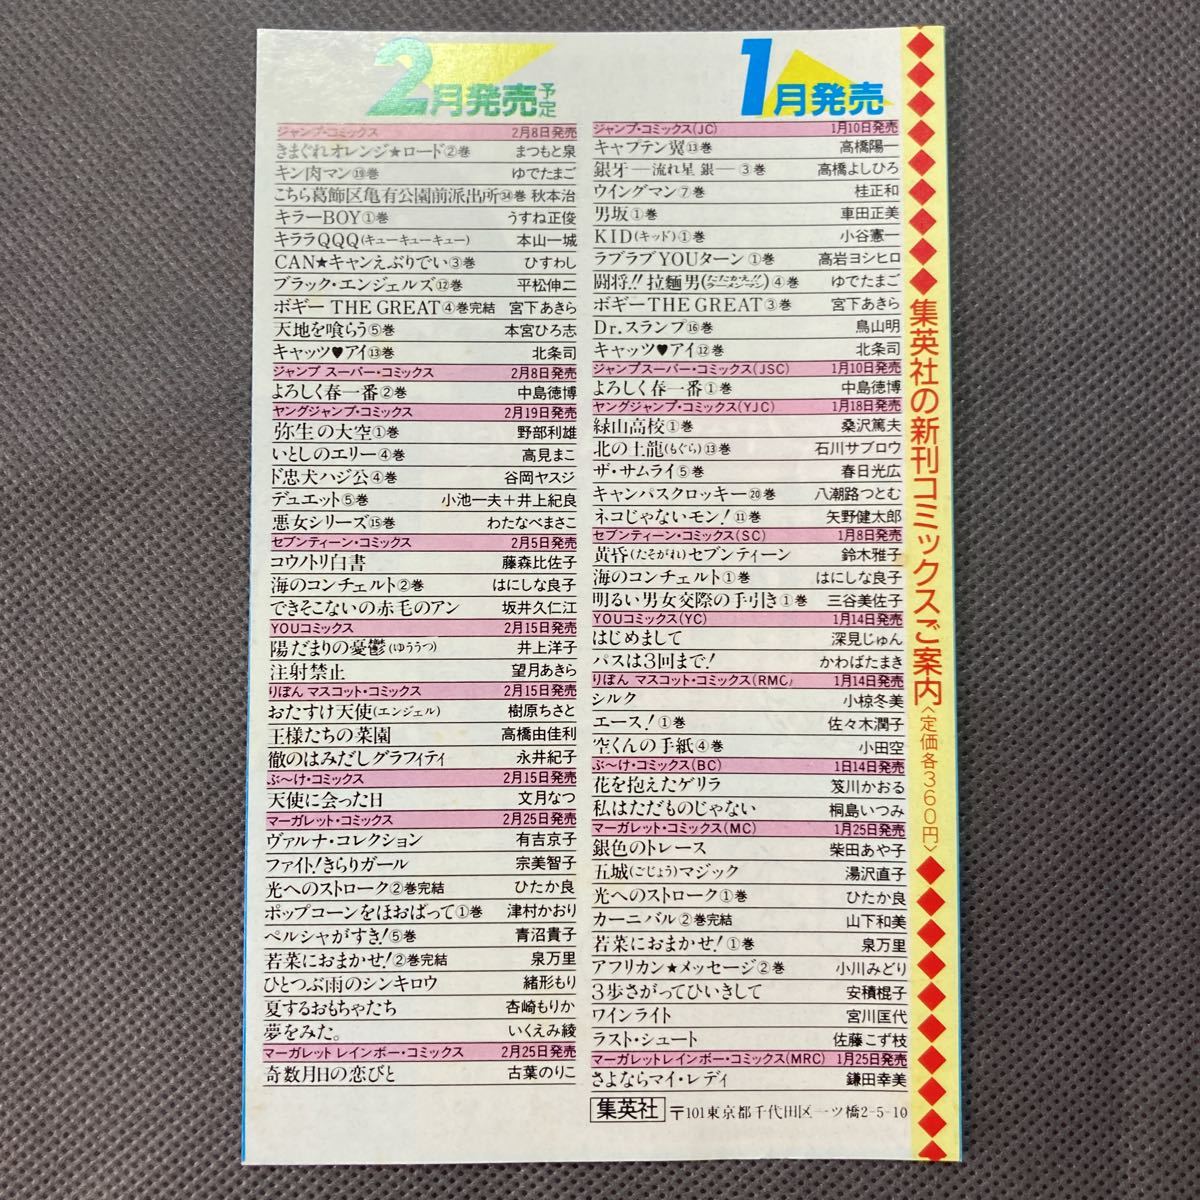 集英社の新刊コミックスご案内〈定価各360円〉
1月発売
ジャンプ・コミックス(JC) 1月10日発売
キャプテン翼⑬巻 高橋陽一
銀牙―流れ星 銀―③巻 高橋よしひろ
ウイングマン⑦巻 桂正和
男坂①巻 車田正美
KID(キッド)①巻 小谷憲一
ラブラブYOUターン①巻 高岩ヨシヒロ
闘将!!拉麵男(たたかえ!!ラーメンマン)④巻 ゆでたまご
ボギーTHE GREAT③巻 宮下あきら
Dr.スランプ⑯巻 鳥山明
キャッツ♥アイ⑫巻 北条司
ジャンプスーパー・コミックス(JSC) 1月10日発売
よろしく春一番①巻 中島徳博
ヤングジャンプ・コミックス(YJC) 1月18日発売
緑山高校①巻 桑沢篤夫
北の土龍(もぐら)⑬巻 石川サブロウ
ザ・サムライ⑤巻 春日光広
キャンパスクロッキー⑳巻 八潮路つとむ
ネコじゃないモン!⑪巻 矢野健太郎
セブンティーン・コミックス(SC) 1月8日発売
黄昏(たそがれ)セブンティーン 鈴木雅子
海のコンチェルト①巻 はにしな良子
明るい男女交際の手引き①巻 三谷美佐子
YOUコミックス(YC) 1月14日発売
はじめまして 深見じゅん
パスは3回まで! かわばたまき
りぼん マスコット・コミックス(RMC) 1月14日発売
シルク 小椋冬美
エース!①巻 佐々木潤子
空くんの手紙④巻 小田空
ぶ〜け・コミックス(BC) 1日14日発売
花を抱えたゲリラ 笈川かおる
私はただものじゃない 桐島いつみ
マーガレット・コミックス(MC) 1月25日発売
銀色のトレース 柴田あや子
五城(ごじょう)マジック 湯沢直子
光へのストローク①巻 ひたか良
カーニバル②巻完結 山下和美
若菜におまかせ!①巻 泉万里
アフリカン★メッセージ②巻 小川みどり
3歩さがってひいきして 安積棍子
ワインライト 宮川匡代
ラスト・シュート 佐藤こず枝
マーガレットレインボー・コミックス(MRC) 1月25日発売
さよならマイ・レディ 鎌田幸美
集英社 〒101東京都千代田区一ツ橋2-5-10
2月発売予定
ジャンプ・コミックス 2月8日発売
きまぐれオレンジ★ロード②巻 まつもと泉
キン肉マン⑲巻 ゆでたまご
こちら葛飾区亀有公園前派出所㉞巻 秋本治
キラーBOY①巻 うすね正俊
キララQQQ(キューキューキュー) 本山一城
CAN★キャンえぶりでい③巻 ひすわし
ブラック・エンジェルズ⑫巻 平松伸二
ボギー THE GREAT④巻完結 宮下あきら
天地を喰らう⑤巻 本宮ひろ志
キャッツ♥アイ⑬巻 北条司
ジャンプ スーパー・コミックス 2月8日発売
よろしく春一番②巻 中島徳博
ヤングジャンプ・コミックス 2月19日発売
弥生の大空①巻 野部利雄
いとしのエリー④巻 高見まこ
ド忠犬ハジ公④巻 谷岡ヤスジ
デュエット⑤巻 小池一夫＋井上紀良
悪女シリーズ⑮巻 わたなべまさこ
セブンティーン・コミックス 2月5日発売
コウノトリ白書 藤森比佐子
海のコンチェルト②巻 はにしな良子
できそこないの赤毛のアン 坂井久仁江
YOUコミックス 2月15日発売
陽だまりの憂鬱(ゆううつ) 井上洋子
注射禁止 望月あきら
りぼん マスコット・コミックス 2月15日発売
おたすけ天使(エンジェル) 樹原ちさと
王様たちの菜園 高橋由佳利
徹のはみだしグラフィティ 永井紀子
ぶ〜け・コミックス 2月15日発売
天使に会った日 文月なつ
マーガレット・コミックス 2月25日発売
ヴァルナ・コレクション 有吉京子
ファイト!きらりガール 宗美智子
光へのストローク②巻完結 ひたか良
ポップコーンをほおばって①巻 津村かおり
ペルシャがすき!⑤巻 青沼貴子
若菜におまかせ!②巻完結 泉万里
ひとつぶ雨のシンキロウ 緒形もり
夏するおもちゃたち 杏崎もりか
夢をみた。 いくえみ綾
マーガレット レインボー・コミックス 2月25日発売
奇数月日の恋びと 古葉のりこ